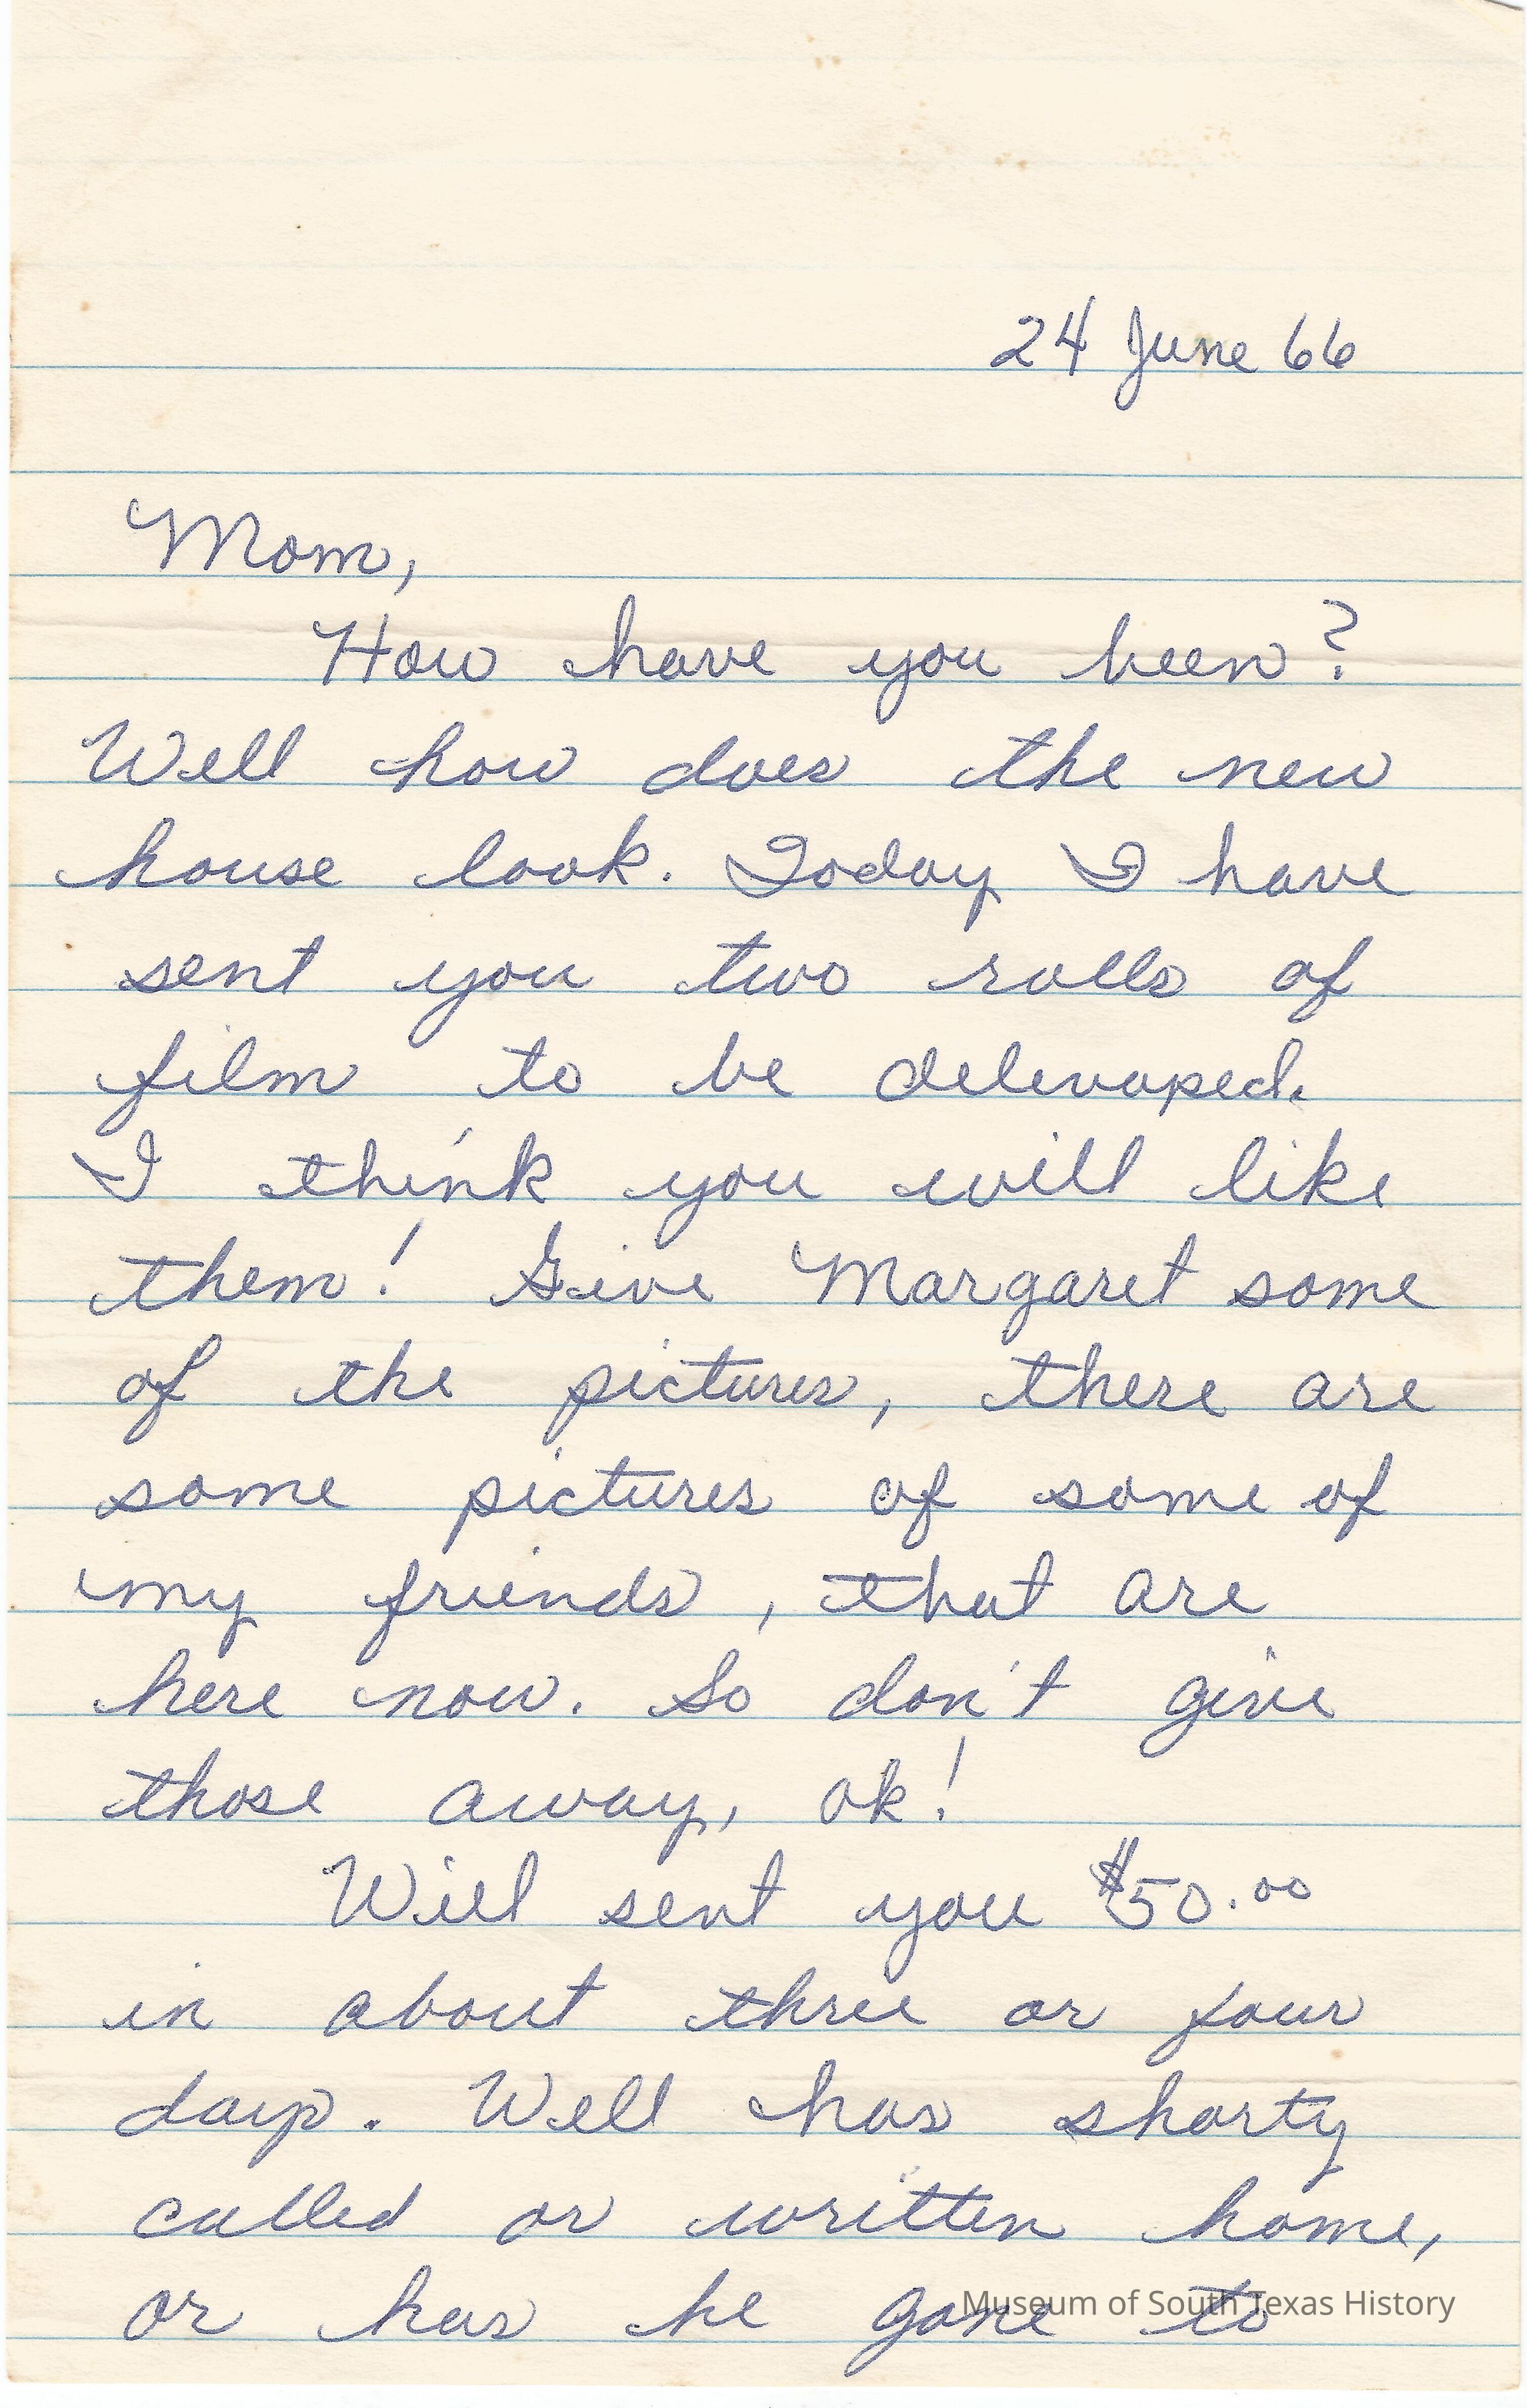 24 June 66
Mom,
How have you been?
Well how does the new
house look. Today I have
sent you two rolls of
film to be delevoped.
I think you will like
them! Give Margaret some
of the pictures, there are
some pictures of some of
my friends, that are
here now. So don't give
those away, ok!
Will sent you $50.00
in about three or four
days. Well has shorty
called or written home,
or has he gone to
Museum of South Texas History